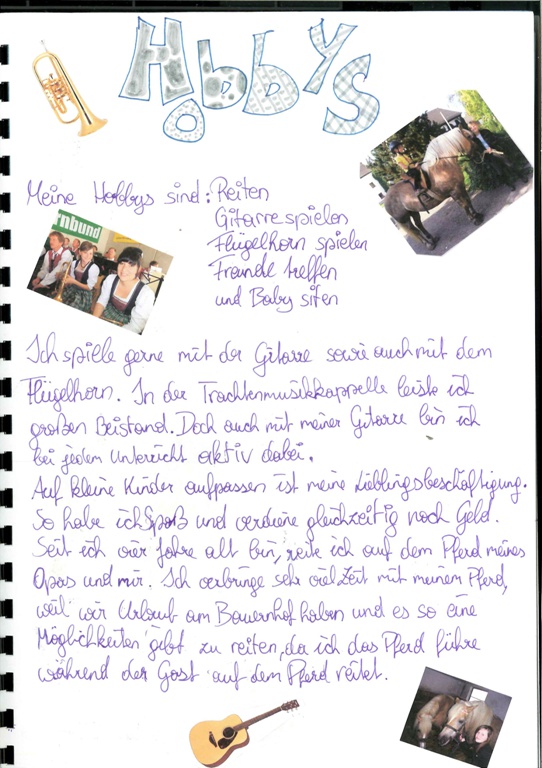 Hobbys
Meine Hobbys sind: Reiten
Gitarre spielen
Flügelhorn spielen
Freunde treffen
und Baby siten
rnbund
Ich spiele gerne mit der Gitarre sowie auch mit dem
Flügelhorn. In der Trachtenmusikkappelle leiste ich
großen Beistand. Doch auch mit meiner Gitarre bin ich
bei jedem Unterricht aktiv dabei.
Auf kleine Kinder aufpassen ist meine Lieblingsbeschäftigung.
So habe ich Spaß und verdiene gleichzeitig noch Geld.
Seit ich vier Jahre alt bin, reite ich auf dem Pferd meines
Opas und mir. Ich verbringe sehr viel Zeit mit meinem Pferd,
weil wir Urlaub am Bauernhof haben und es so eine
Möglichkeiten gibt zu reiten, da ich das Pferd führe
während der Gast auf dem Pferd reitet.